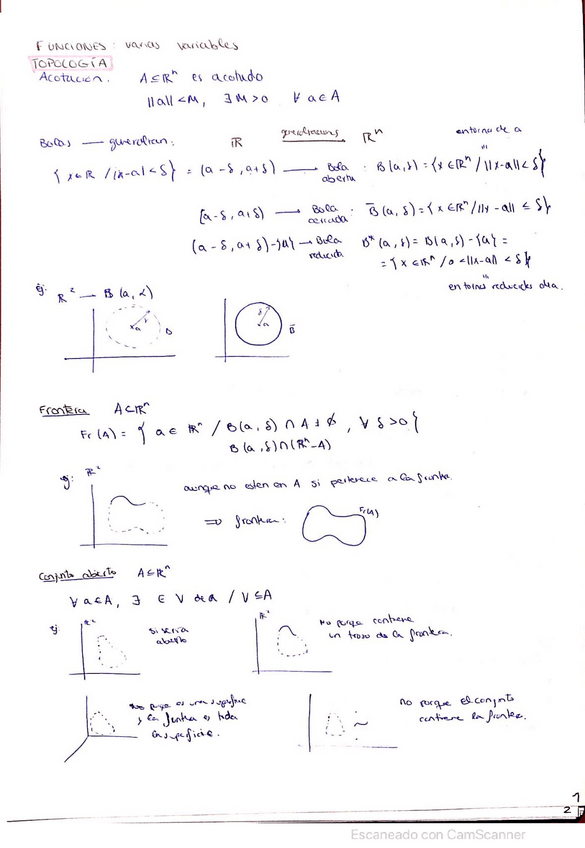 FUNCIONES: varias variables
TOPOLOGÍA
Acotación. A⊆ℝⁿ es acotado
||a|| < M, ∃ M>0 ∀ a∈A
Bolas — generalizan: ℝ generalizamos ℝⁿ entorno de a
{ x∈ℝ / |x-a| < δ } = (a-δ, a+δ) → Bola abierta : B(a,δ) = {x∈ℝⁿ / ||x-a|| < δ}
[a-δ, a+δ] → Bola cerrada : B̄(a,δ) = {x∈ℝⁿ / ||x-a|| ≤ δ}
(a-δ, a+δ)-{a} → Bola reducida B*(a,δ) = B(a,δ) - {a} =
= {x∈ℝⁿ / 0<||x-a|| < δ}
entornos reducidos de a.
ej: ℝ² — B(a,
a B
δ a B̄
Frontera A⊂ℝⁿ
Fr(A) = { a∈ℝⁿ / B(a,δ) ∩ A ≠ ∅, ∀ δ>0 }
B(a,δ) ∩ (ℝⁿ-A)
ej: ℝ² aunque no esten en A si pertenece a la frontera.
⇒ frontera: Fr(A)
Conjunto abierto A⊆ℝⁿ
∀ a∈A, ∃ E V de a / V⊆A
ej ℝ² si sería abierto
ℝ² No porque contiene un trozo de la frontera.
No porque es una superficie y la frontera es toda la superficie.
no porque el conjunto contiene la frontera.
1
2
Escaneado con CamScanner